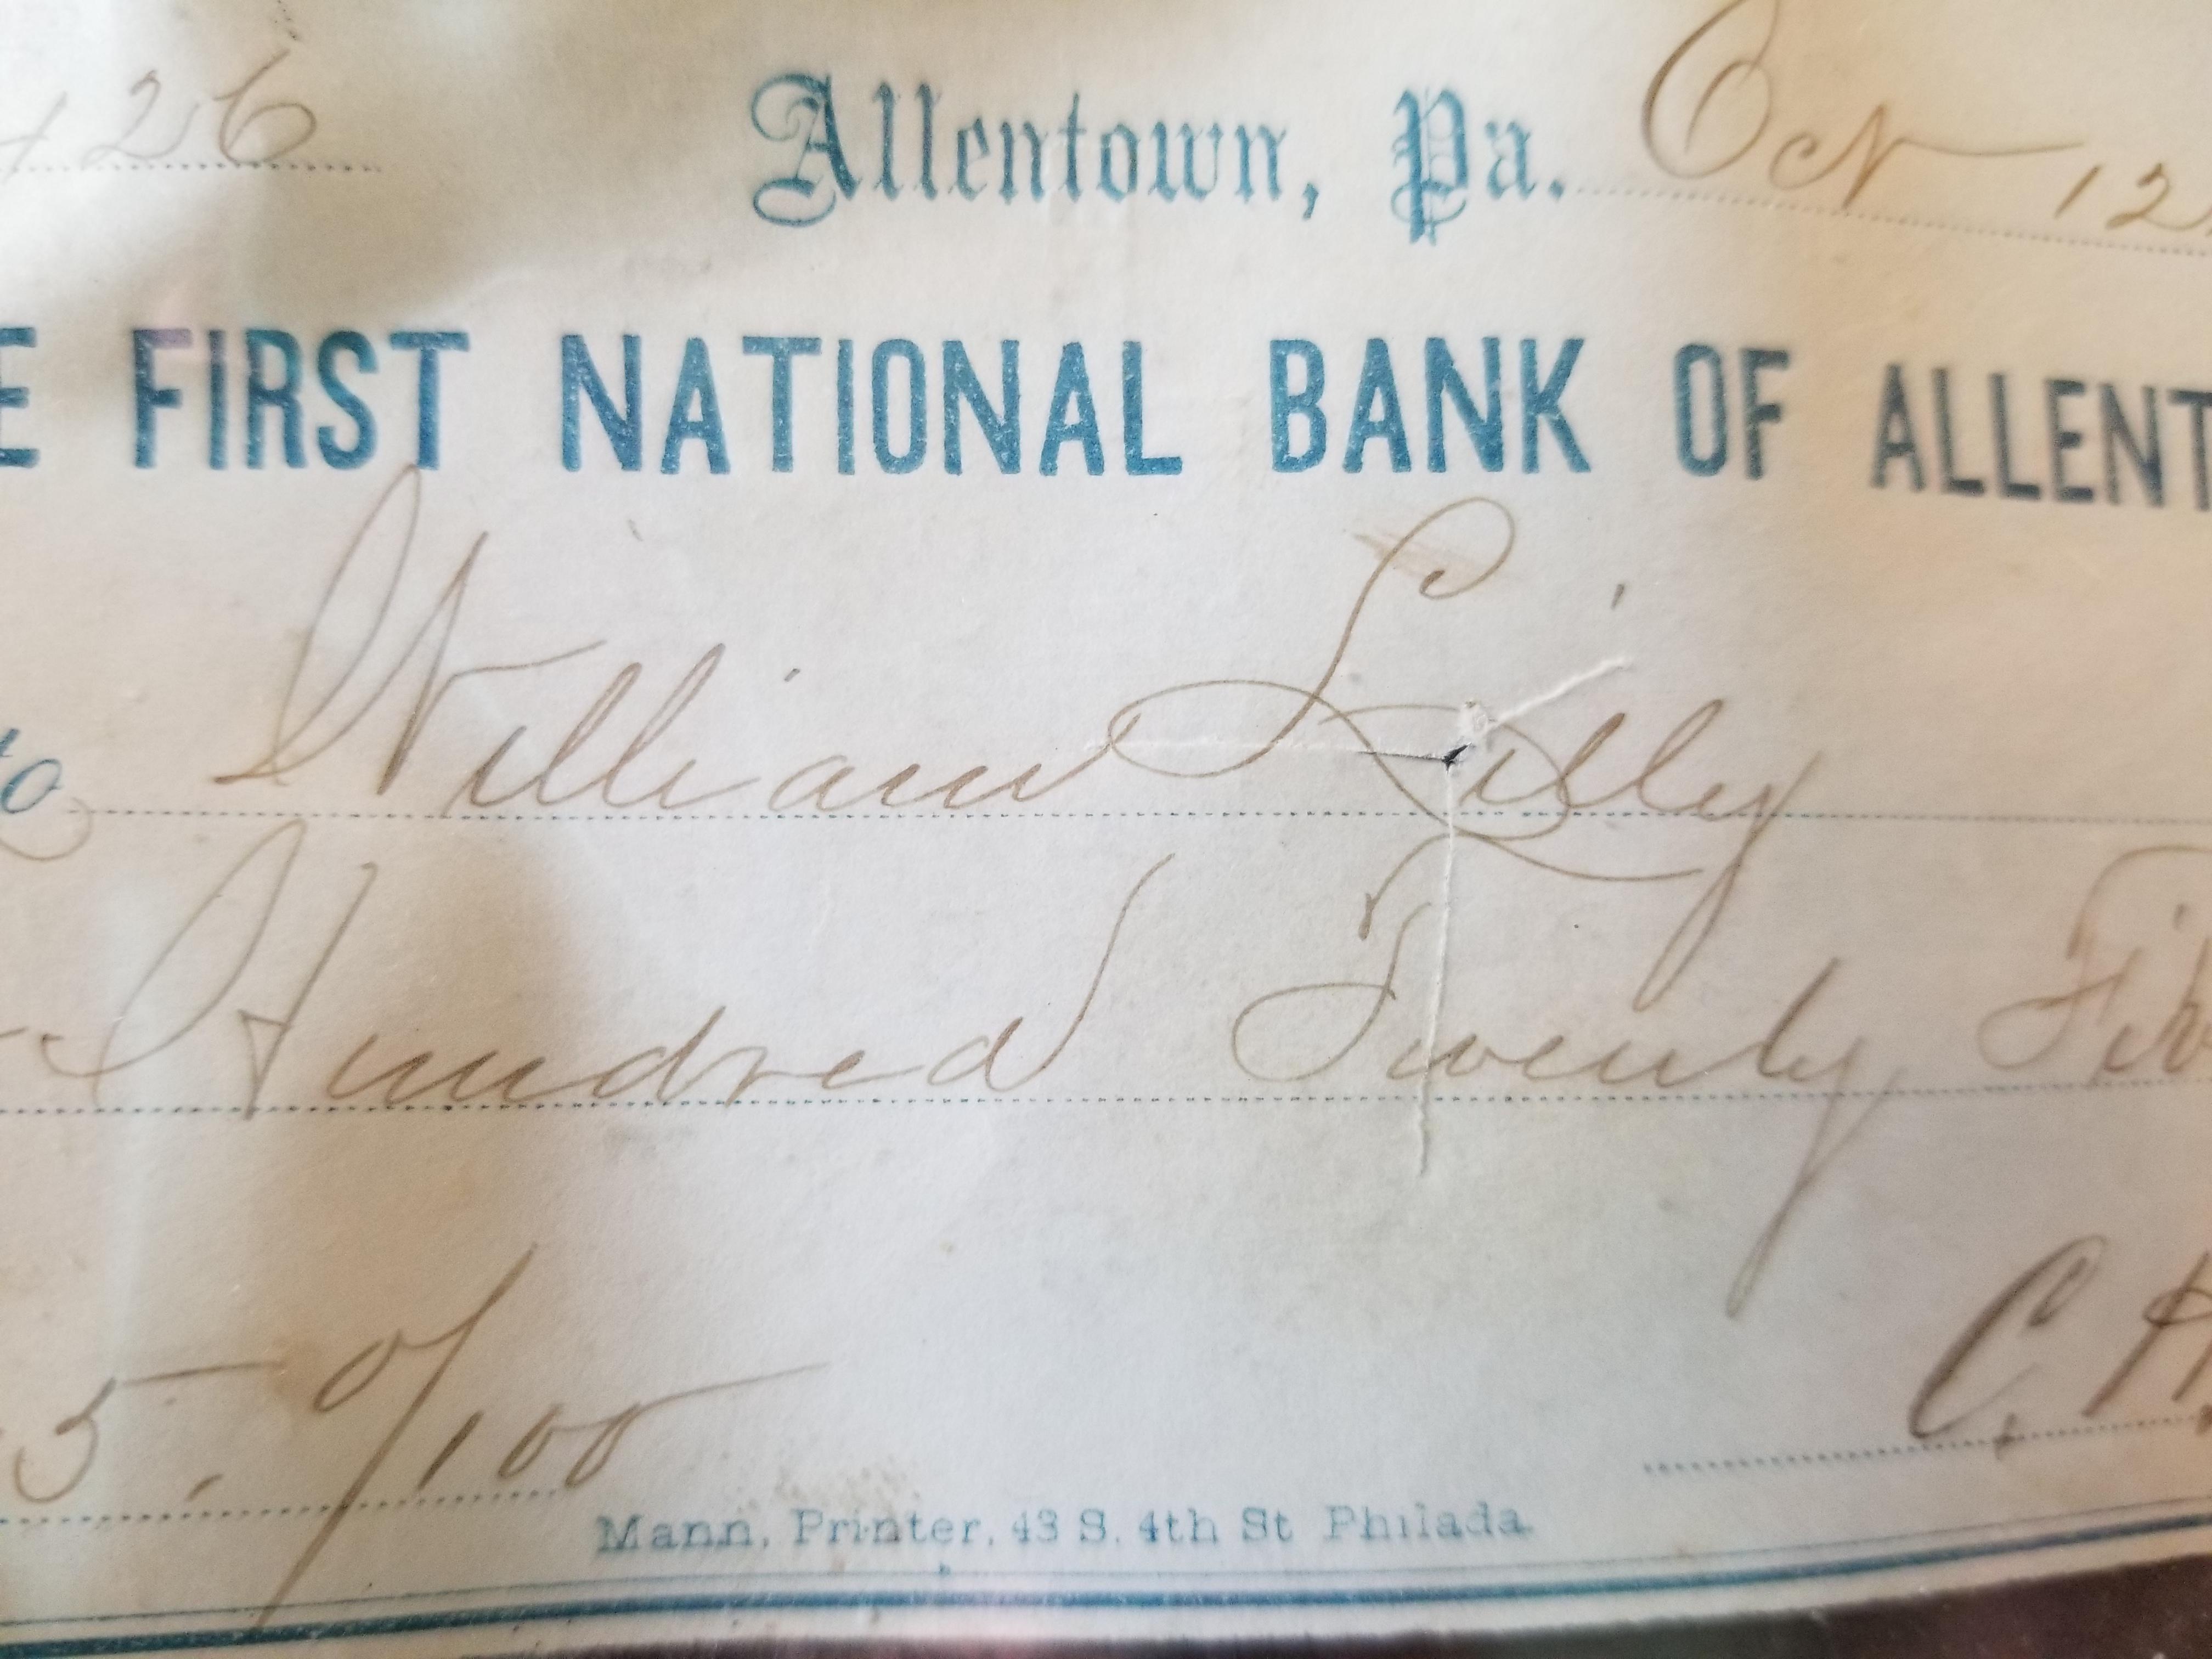 426 Allentown, Pa. Oct 12
E FIRST NATIONAL BANK OF ALLENT
to William Lilly
Hundred Twenty Fiv
5. 0/100 C. H.
Mann, Printer, 43 S. 4th St Philada